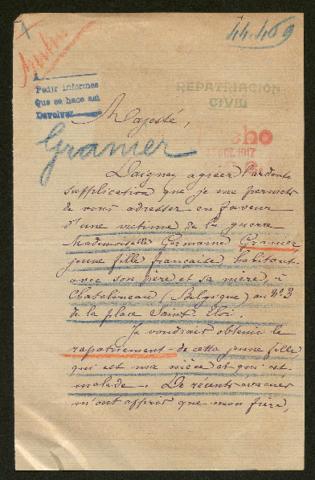 44.469
REPATRIACION
CIVIL
Pedir informes
Que se hace asi
Devolver
Majesté,
Granier
Daignez agréer l'ardente
supplication que je me permets
de vous adresser en faveur
d'une victime de la guerre
Mademoiselle Germaine Granier
jeune fille française habitant
avec son père et sa mère, à
Chatelineau (Belgique) au N°3
de la place Saint Eloi.
Je voudrais obtenir le
rapatriement de cette jeune fille
qui est ma nièce et qui est
malade. De récents
m'ont appris que mon frère,